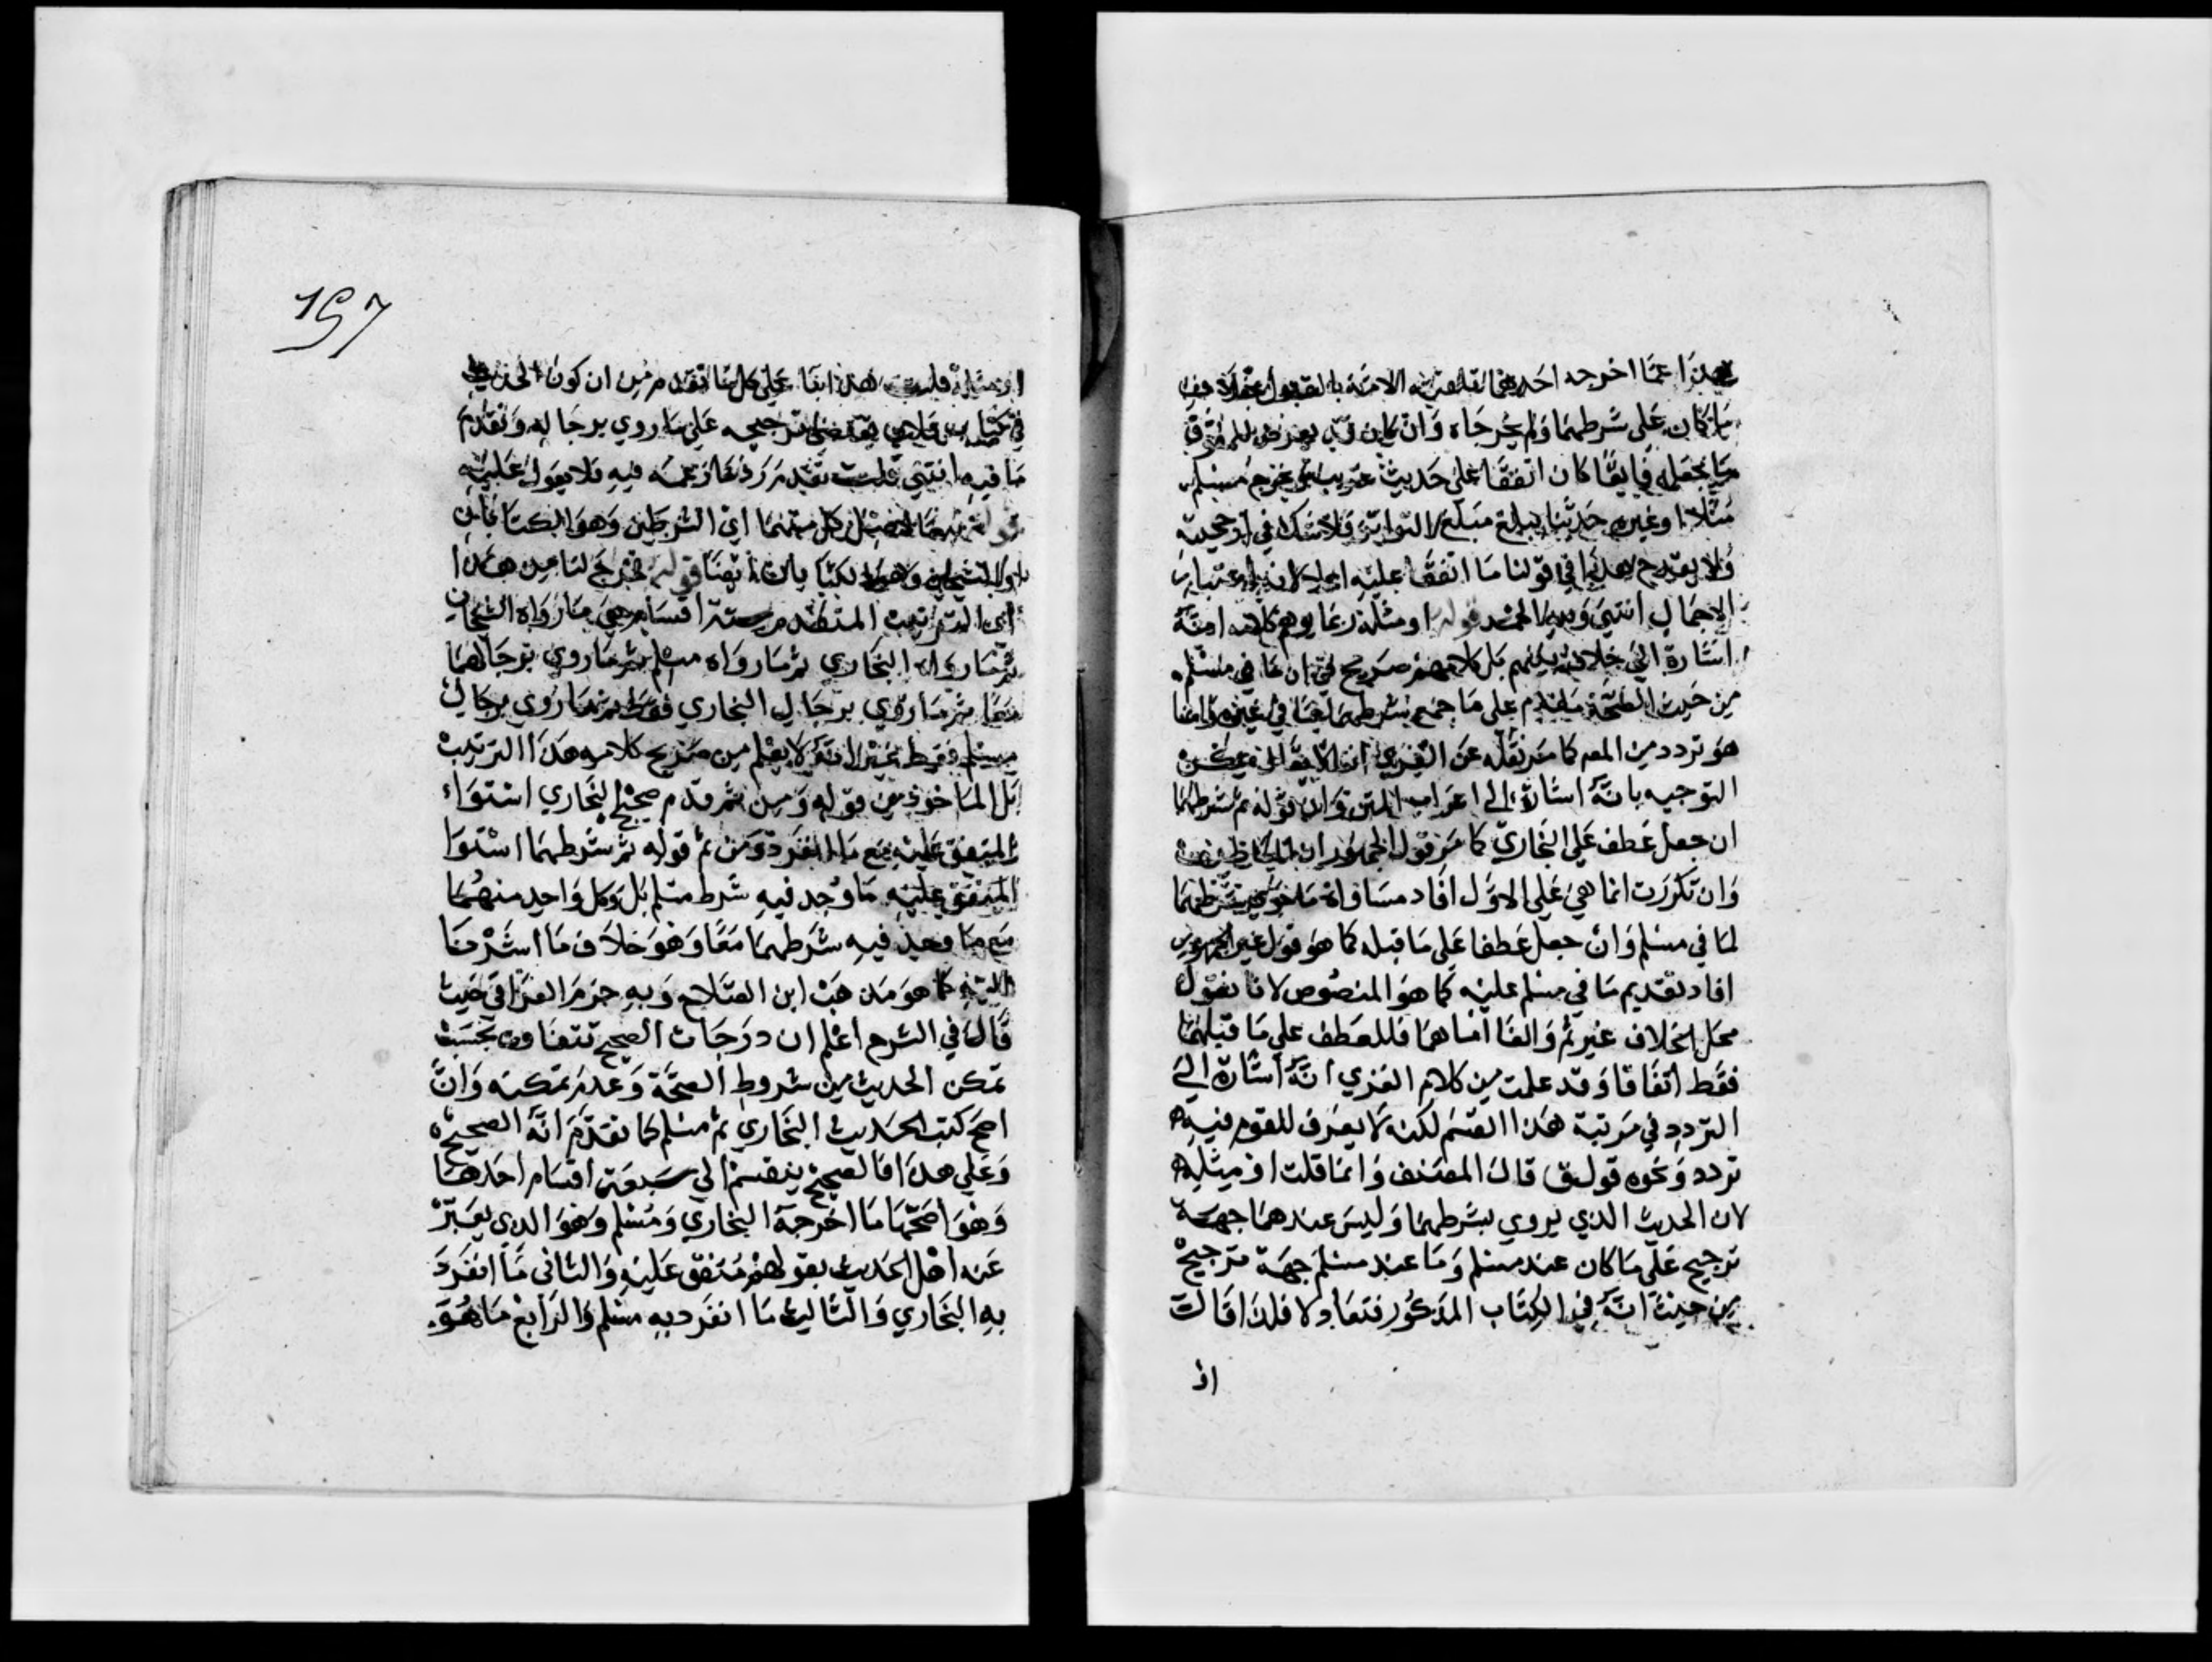 هذا عما اخرجه احدهما تلقته الامة بالقبول
ما كان على شرطهما ولم يخرجاه وان كان قد يعرض للمفوق
ما يجعله فايقا كان اتفقا على حديث غريب ويخرج مسلم
مثلا او غيره حديثا يبلغ مبلغ التواتر فلا شك في ارجحيته
ولا يقدح هذا في قولنا ما اتفقا عليه باعتبار
الاجمال انتهى قوله او مثله ربما يوهم كلامه انه
اشارة الى خلاف بينهم بل كلامهم صريح في ان ما في مسلم
من حيث الصحة مقدم على ما جمع شرطهما في غيره وانما
هو تردد من المص كما مر نقله عن الغزي
التوجيه بانه اشارة الى اعراب المتن وان قوله ثم شرطهما
ان جعل عطف على البخاري كما مر قول الجمهور
وان تكررت انما هي على الاول افاد مساواة ما حوى شرطهما
لما في مسلم وان جعل عطفا على ما قبله كما هو قول غير الجمهور
افاد تقديم ما في مسلم عليه كما هو المنصوص لانا نقول
محل الخلاف غير ثم والفا اما هما فللعطف على ما قبلهما
فقط اتفاقا وقد علمت من كلام الغزي انه اشارة الى
التردد في مرتبة هذا القسم لكنه لا يعرف للقوم فيه
تردد ونحوه قول ق قال المصنف وانما قلت او مثله
لان الحديث الذي يروي بشرطهما وليس عندهما جهة
ترجيح على ما كان عند مسلم وما عند مسلم جهة ترجيح
من حيث انه في الكتاب المذكور فتعادلا فلذا قلت
او
157
او مثله قلت هذا على كل ما تقدم من ان كون الحديث
في كتاب فلان يقتضي ترجيحه على ما روي برجاله وتقدم
ما فيه انتهى قلت تقدم رد ما زعمه فيه فلا يعول عليه
كل منهما اي الشرطين وهو الكتابان
او الشيخان ايضا قوله فخرج لنا من هذا
اي الترتيب المتقدم ستة اقسام هي ما رواه الشيخان
ثم ما رواه البخاري ثم ما رواه مسلم ثم ما روي برجالهما
معا ثم ما روي برجال البخاري فقط ثم ما روي برجال
مسلم فقط غير انه لا يعلم من صريح كلامه هذا الترتيب
بل الماخوذ من قوله ومن ثم قدم صحيح البخاري استواء
المتفق عليه مع ما انفرد ومن ثم قوله ثم شرطهما استوا
المتفق عليه ما وجد فيه شرط مسلم بل وكل واحد منهما
مع ما وجد فيه شرطهما معا وهو خلاف ما اشرنا
اليه كما هو مذهب ابن الصلاح وبه جزم العراقي حيث
قال في الشرح اعلم ان درجات الصحيح تتفاوت بحسب
تمكن الحديث من شروط الصحة وعدم تمكنه وان
اصح كتب الحديث البخاري ثم مسلم كما تقدم انه الصحيح
وعلى هذا فالصحيح ينقسم الى سبعة اقسام احدها
وهو اصحها ما اخرجه البخاري ومسلم وهو الذي يعبر
عنه اهل الحديث بقولهم متفق عليه والثاني ما انفرد
به البخاري والثالث ما انفرد به مسلم والرابع ما هو